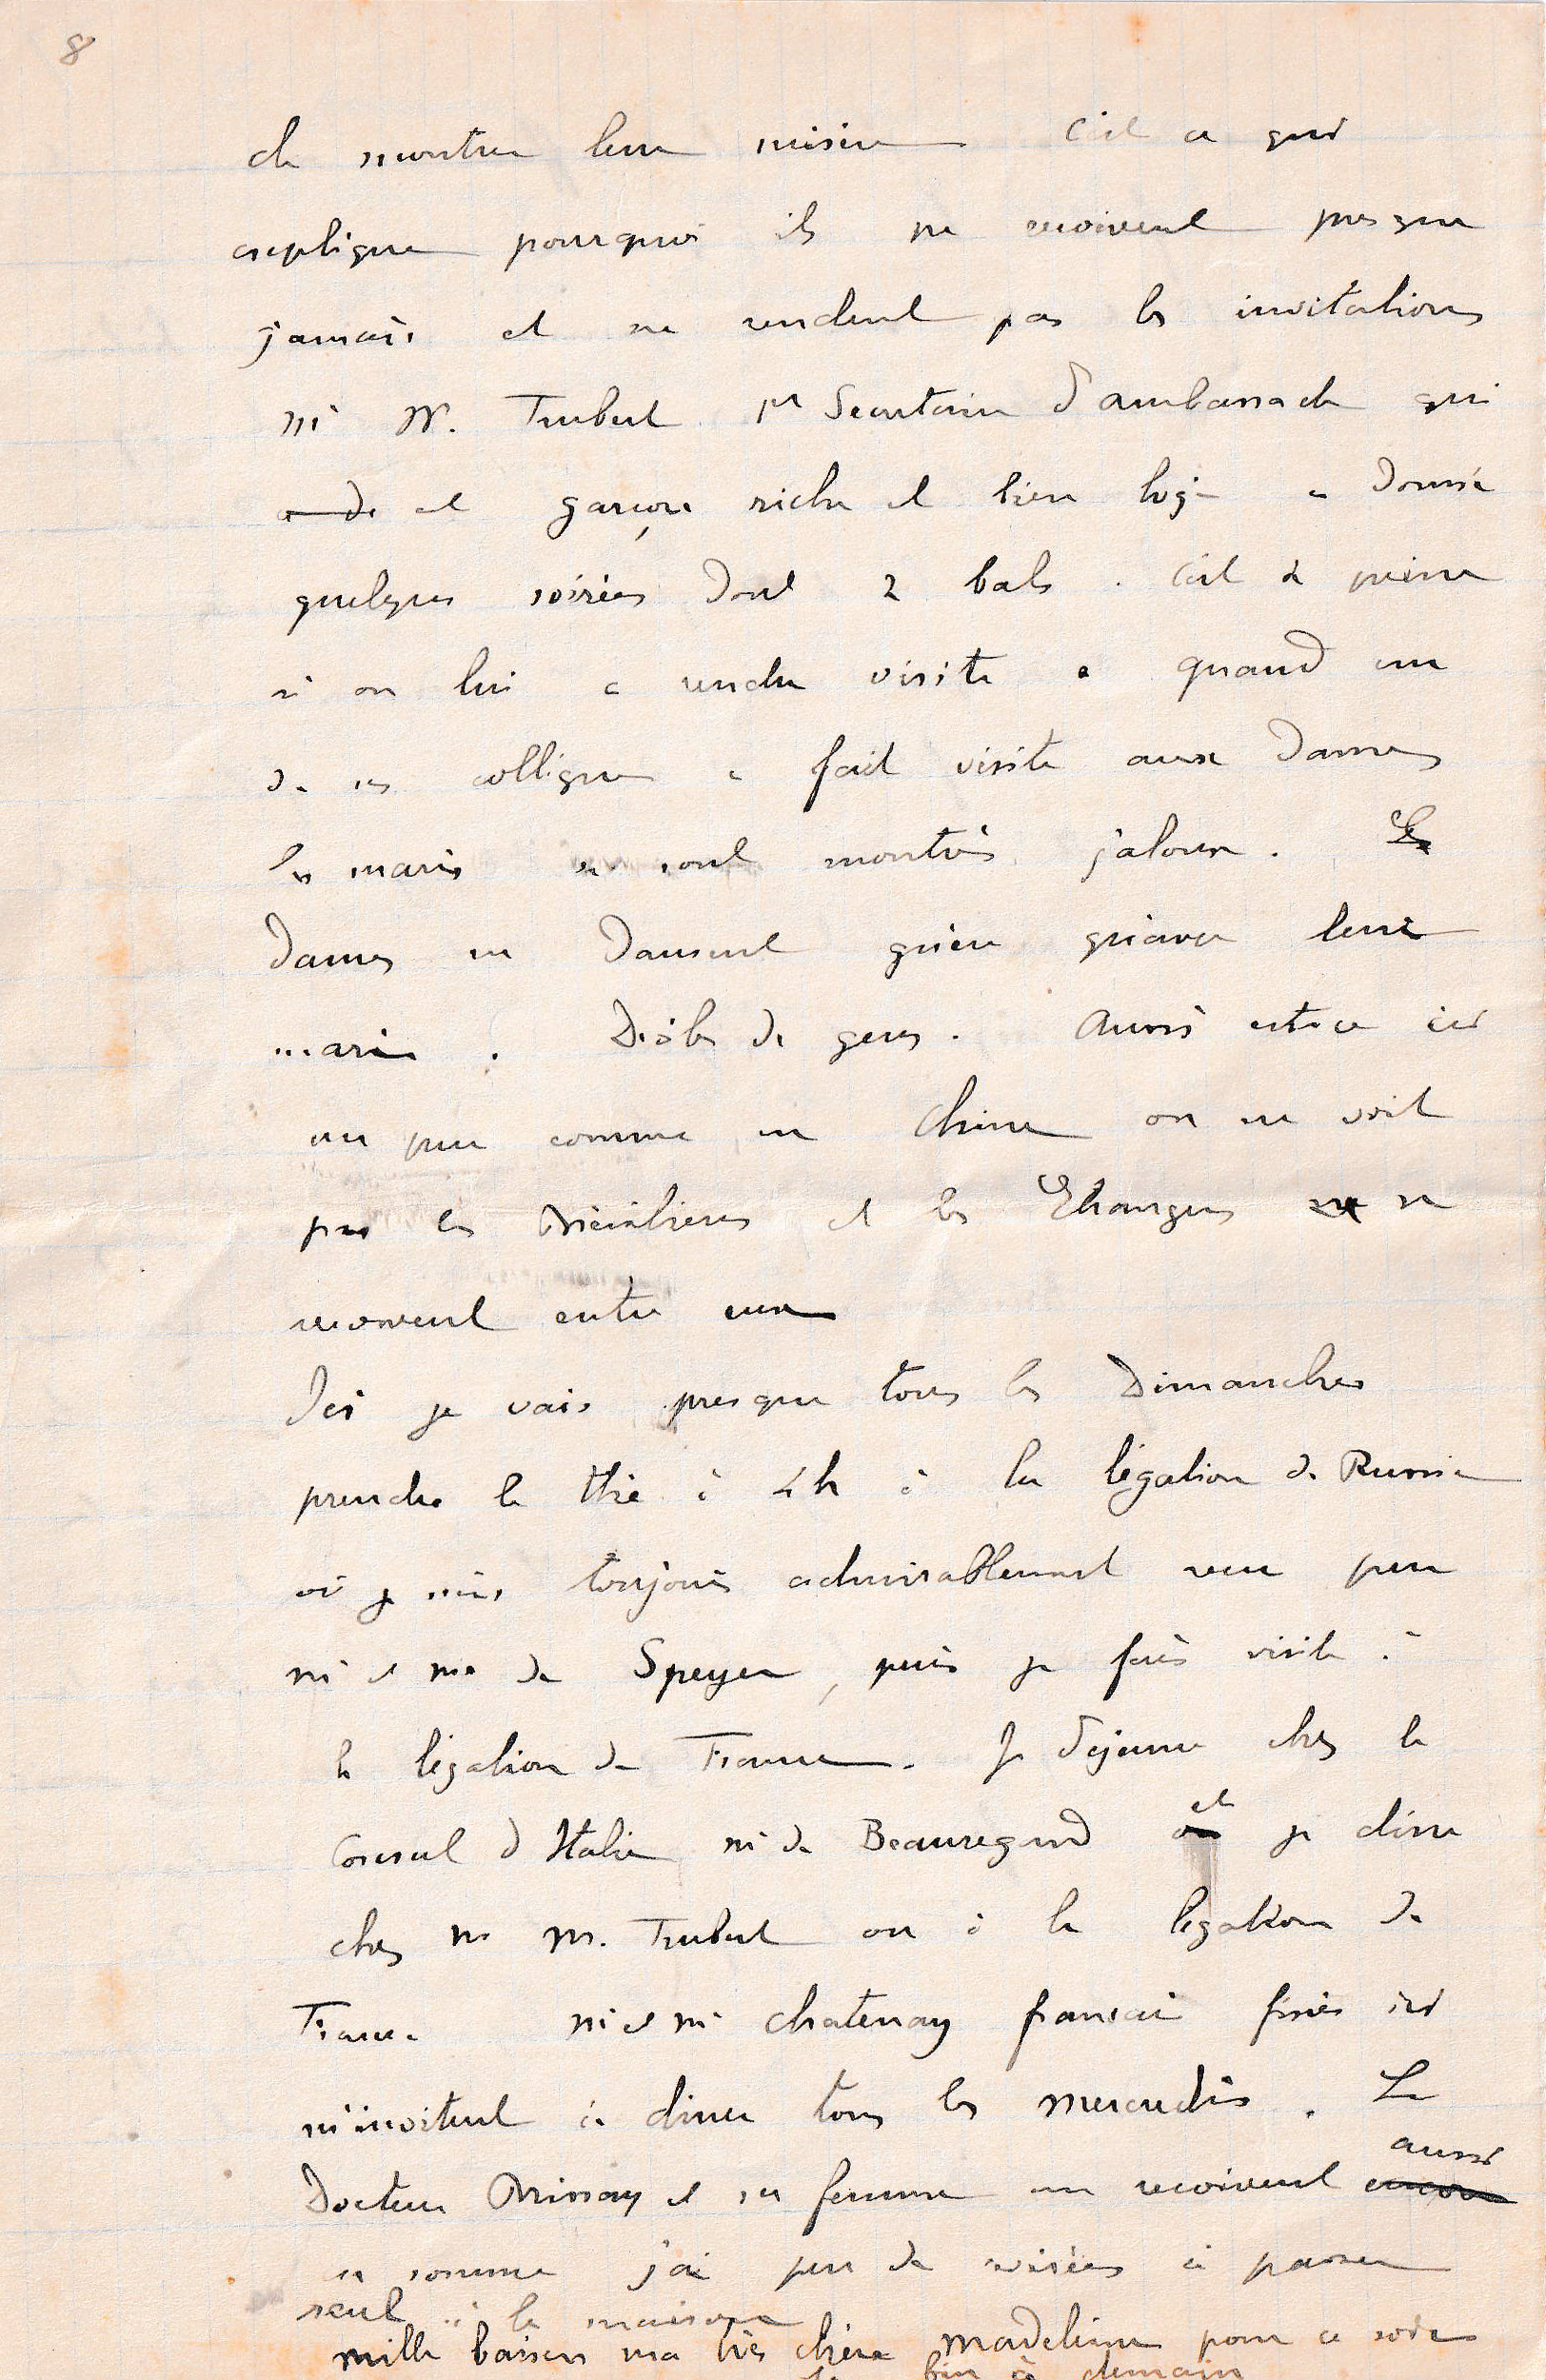 8
de montrer leur misère C'est ce qui
explique pourquoi ils ne reçoivent presque
jamais et ne rendent pas les invitations
M. Trubert 1er Secrétaire d'ambassade qui
est garçon riche et bien logé a donné
quelques soirées dont 2 bals. C'est à peine
si on lui a rendu visite quand un
de ses collègues a fait visite aux Dames
les maris se sont montrés jaloux. Les
Dames ne Dansent guère qu'avec leur
mari. Drôles de gens. Aussi est-ce ici
un peu comme en Chine on ne voit
pas les Brésiliens et les Etrangers se
reçoivent entre eux
Ici je vais presque tous les Dimanches
prendre le thé à 4h à la légation de Russie
où je suis toujours admirablement reçu par
Mr et Me de Speyer, puis je fais visite à
la légation de France. Je déjeune chez le
Consul d'Italie Mr de Beauregard et je dine
chez M. Trubert ou à la légation de
France Mr et Me Chatenay français fixés ici
m'invitent à diner tous les mercredis. Le
Docteur Brissay et sa femme me reçoivent aussi
en somme j'ai peu de soirées à passer
seul à la maison
mille baisers ma très chère Madeleine pour ce soir
à demain